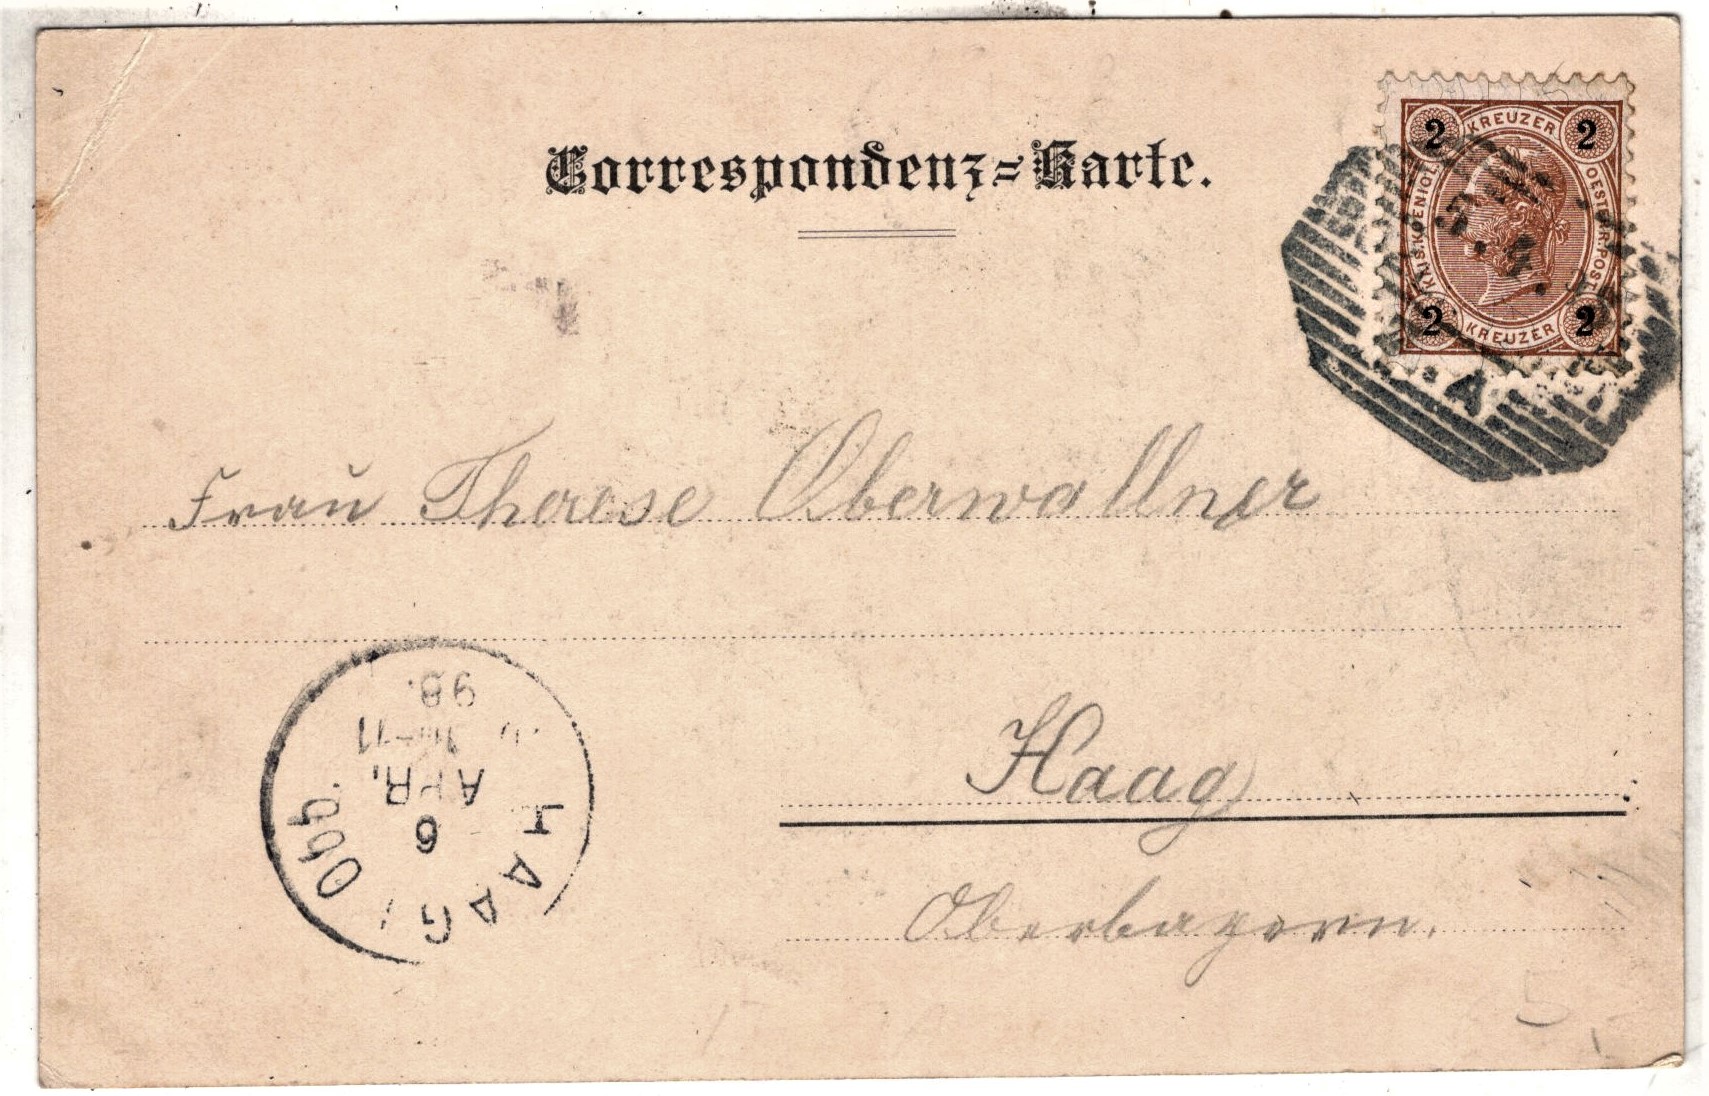 Correspondenz-Karte.
2 KREUZER 2
KAIS. KOENIGL. OESTERR. POST
2 KREUZER 2
Frau Therese Oberwallner
Haag
Oberbayern.
HAAG Obb.
6
APR.
98.
5